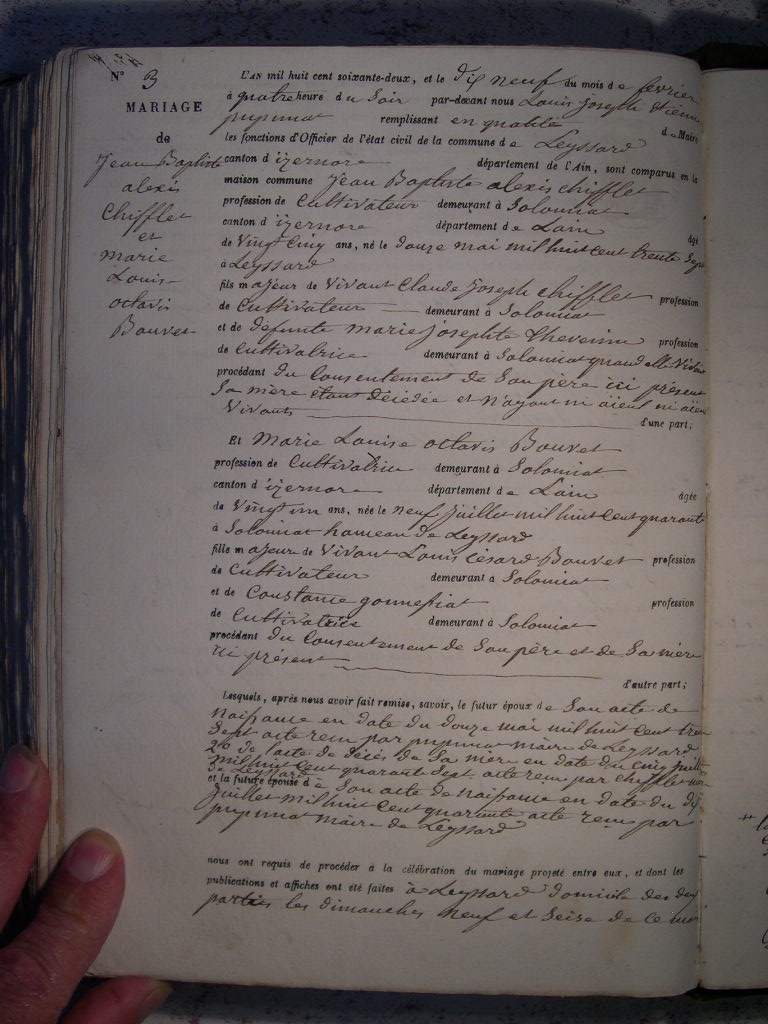 N° 3
MARIAGE
de
Jean Baptiste
alexis
Chifflet
et
marie
Louise
octavis
Bouvet
L'AN mil huit cent soixante-deux, et le dix neuf du mois de fevrier
à quatre heure du Soir par-devant nous Louis Joseph Etienne
pupunat remplissant en qualité de Maire
les fonctions d'Officier de l'état civil de la commune de Leyssard
canton d'izernore département de l'Ain, sont comparus en la
maison commune Jean Baptiste alexis chifflet
profession de Cultivateur demeurant à Solomiat
canton d'izernore département de Lain âgé
de Vingt Cinq ans, né le douze mai mil huit cent trente Sept
à Leyssard
fils majeur de Vivant Claude Joseph chifflet profession
de Cultivateur demeurant à Solomiat
et de défunte marie Josephte thevenin profession
de Cultivatrice demeurant à Solomiat quand elle Vivait
procédant du Consentement de Son père ici présent
Sa mère étant décédée et n'ayant ni aïeul ni aïeule
Vivants d'une part;
Et Marie Louise octavis Bouvet
profession de Cultivatrice demeurant à Solomiat
canton d'izernore département de Lain âgée
de Vingt un ans, née le neuf Juillet mil huit Cent quarante
à Solomiat hameau de Leyssard
fille majeur de Vivant Louis Césard Bouvet profession
de Cultivateur demeurant à Solomiat
et de Constance gonnessiat profession
de Cultivatrice demeurant à Solomiat
procédant du Consentement de Son père et de Sa mère
ici présent
d'autre part;
Lesquels, après nous avoir fait remise, savoir, le futur époux de Son acte de
naissance en date du douze mai mil huit Cent trente
Sept acte reçu par pupunat maire de Leyssard
2° de l'acte de décès de Sa mère en date du Cinq
mil huit Cent quarante Sept acte reçu par chifflet
de Leyssard
et la future épouse de Son acte de naissance en date du
Juillet mil huit Cent quarante acte reçu par
pupunat maire de Leyssard
nous ont requis de procéder à la célébration du mariage projeté entre eux, et dont les
publications et affiches ont été faites à Leyssard domicile des deux
parties les dimanches neuf et Seize de ce mois